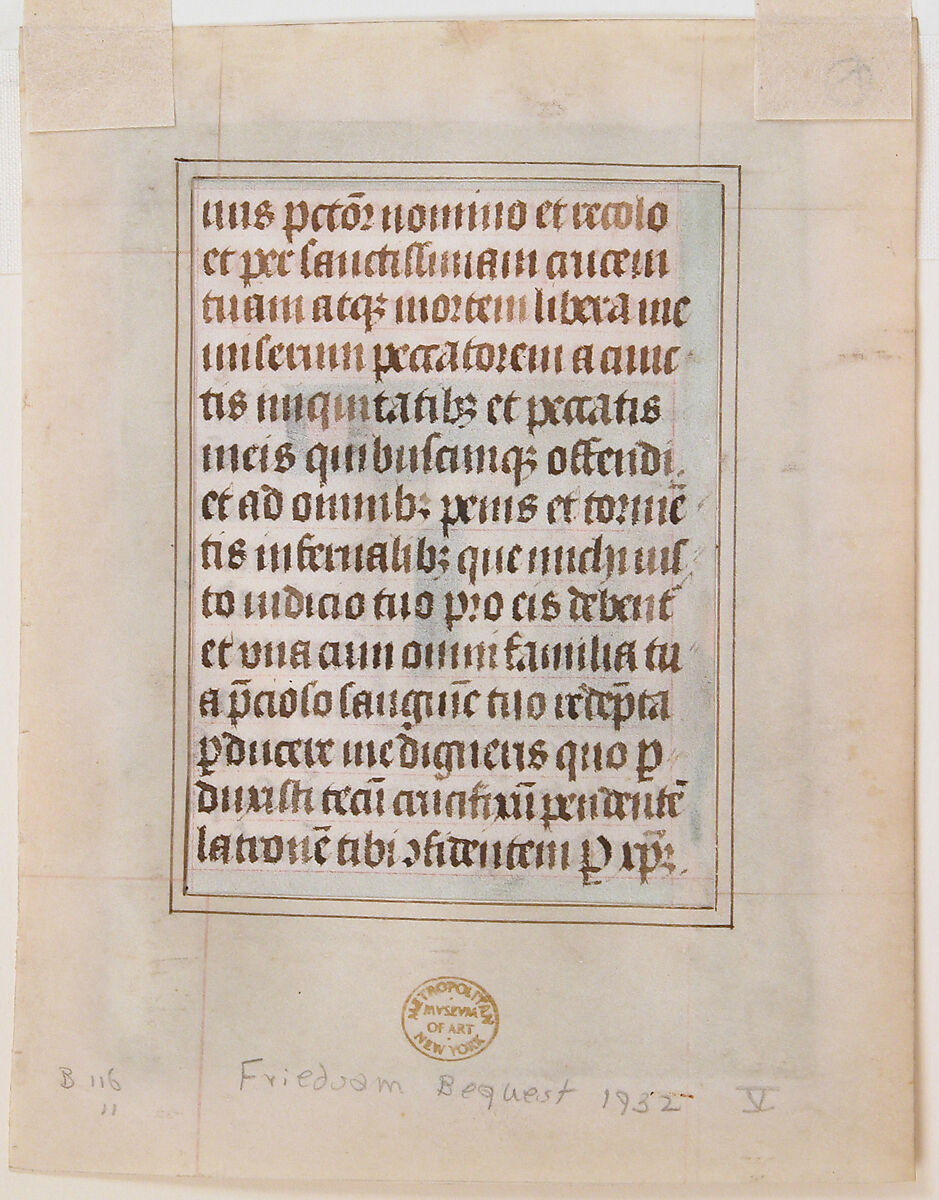 uus pctōꝝ nomino et recolo
et per sanctissimam crucem
tuam atqꝫ mortem libera me
miserum peccatorem a cunc
tis iniquitatibꝫ et peccatis
meis quibuscumqꝫ offendi.
et ad omnibꝫ penis et tormē
tis infernalibꝫ que michi ius
to iudicio tuo pro eis debent᷑
et una cum omni familia tu
a p̄cioso sanguīe tuo redēpta
ꝑducere me digneris quo ꝑ
duxisti tecū crucifixū pendentē
latronē tibi ꝯfidentem ꝑ xp̄ꝫ.
METROPOLITAN
MVSEVM
OF ART
NEW YORK
B 116
11
Friedsam Bequest 1932 V